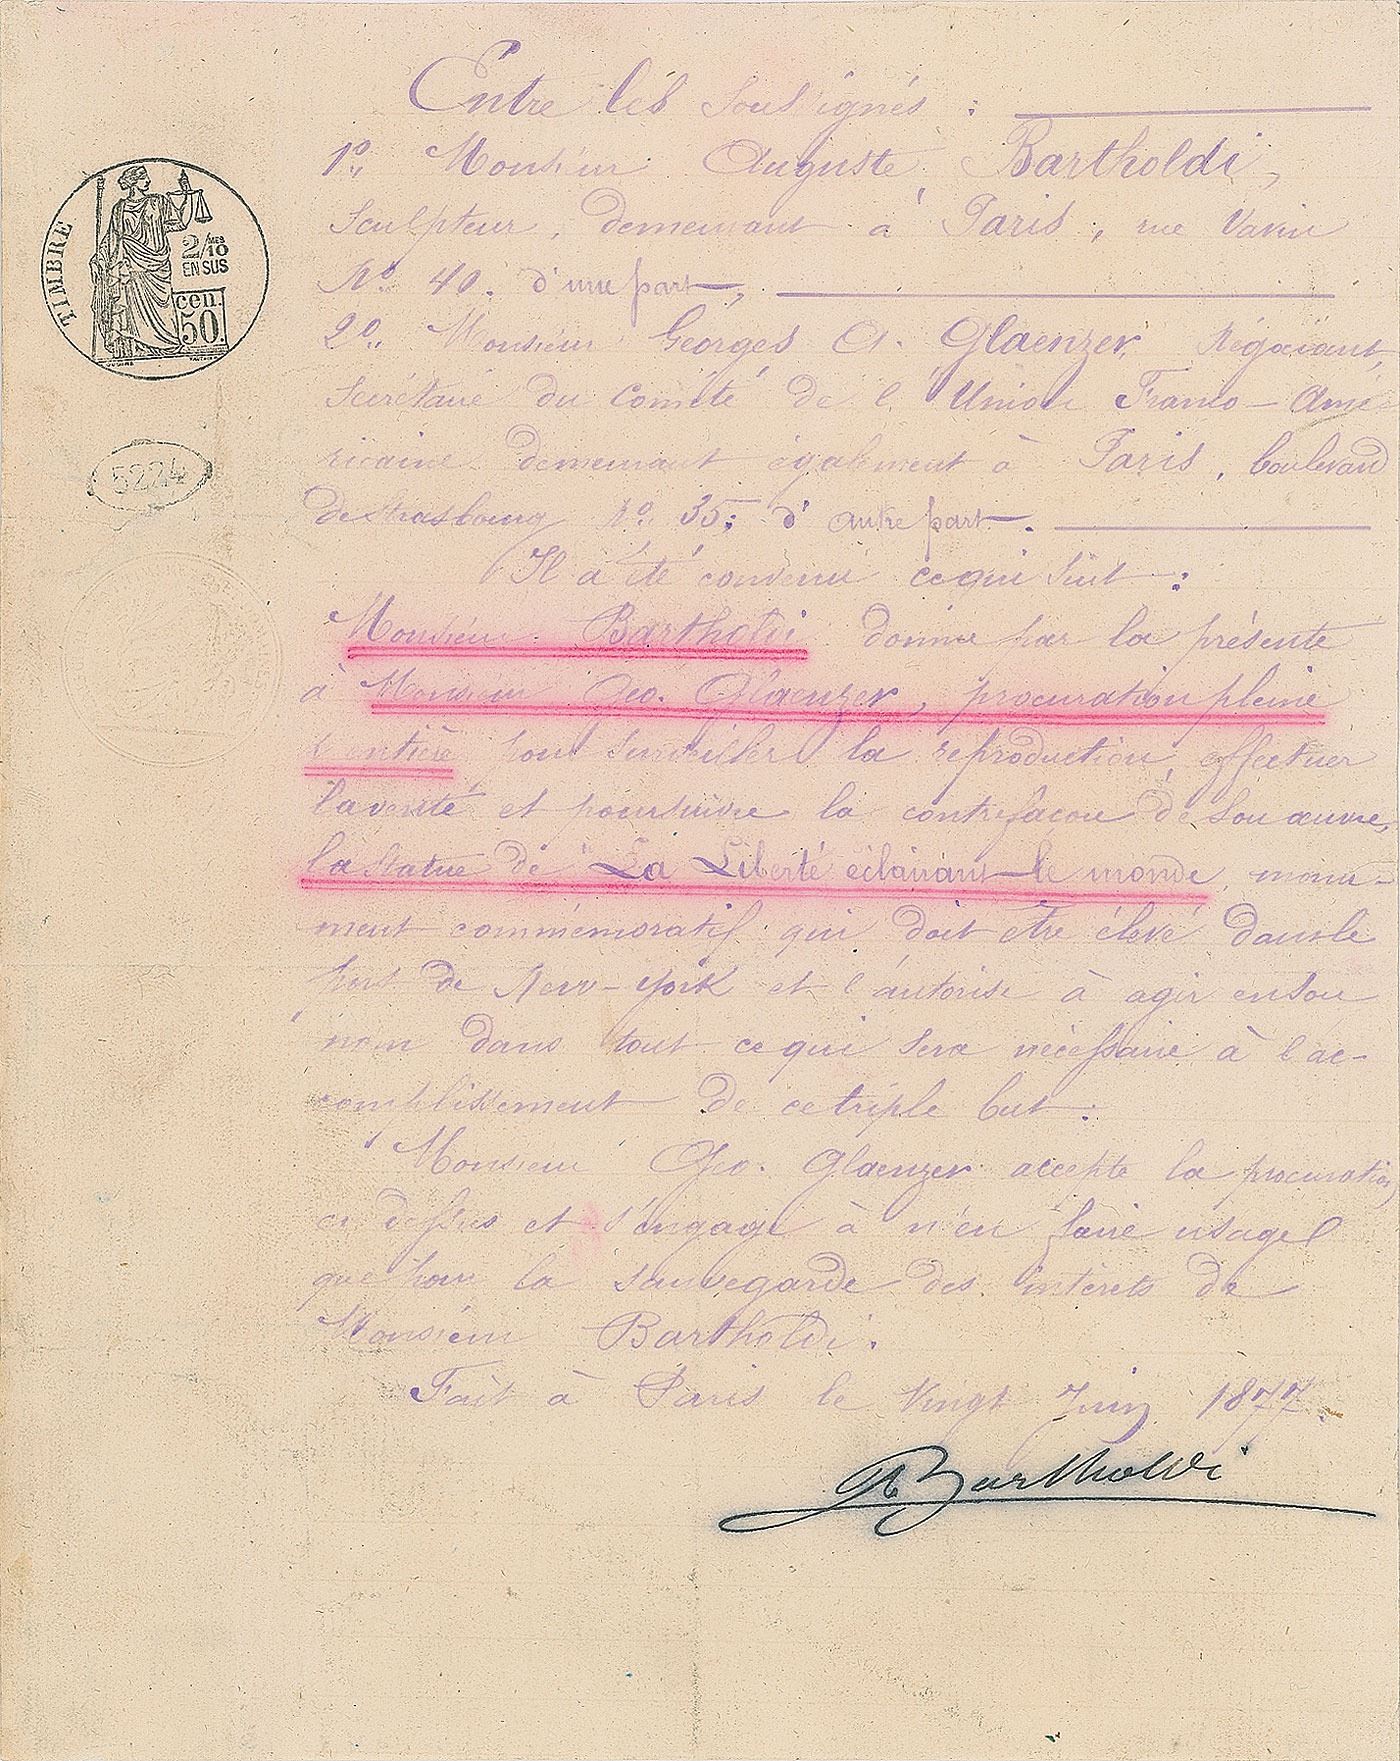 Entre les Soussignés :
1º, Monsieur Auguste Bartholdi,
Sculpteur, demeurant à Paris, rue Vavin
Nº 40. d'une part,
2º, Monsieur Georges A. Glaenzer, Négociant,
Secrétaire du Comité de l'Union Franco-Amé-
ricaine demeurant également à Paris, boulevard
de Strasbourg Nº 35; d'autre part.
Il a été convenu ce qui suit :
Monsieur Bartholdi donne par la présente
à Monsieur Geo. Glaenzer, procuration pleine
& entière pour surveiller la reproduction, effectuer
la vente et poursuivre la contrefaçon de son œuvre,
la statue de "La Liberté éclairant le monde, monu-
ment commémoratif qui doit être élevé dans le
port de New-York et l'autorise à agir en son
nom dans tout ce qui sera nécessaire à l'ac-
complissement de ce triple but.
Monsieur Geo. Glaenzer accepte la procuration
ci dessus et s'engage à n'en faire usage
que pour la sauvegarde des intérêts de
Monsieur Bartholdi.
Fait à Paris le Vingt Juin 1877.
A Bartholdi
TIMBRE
2/10 MES
EN SUS
cen.
50.
5224